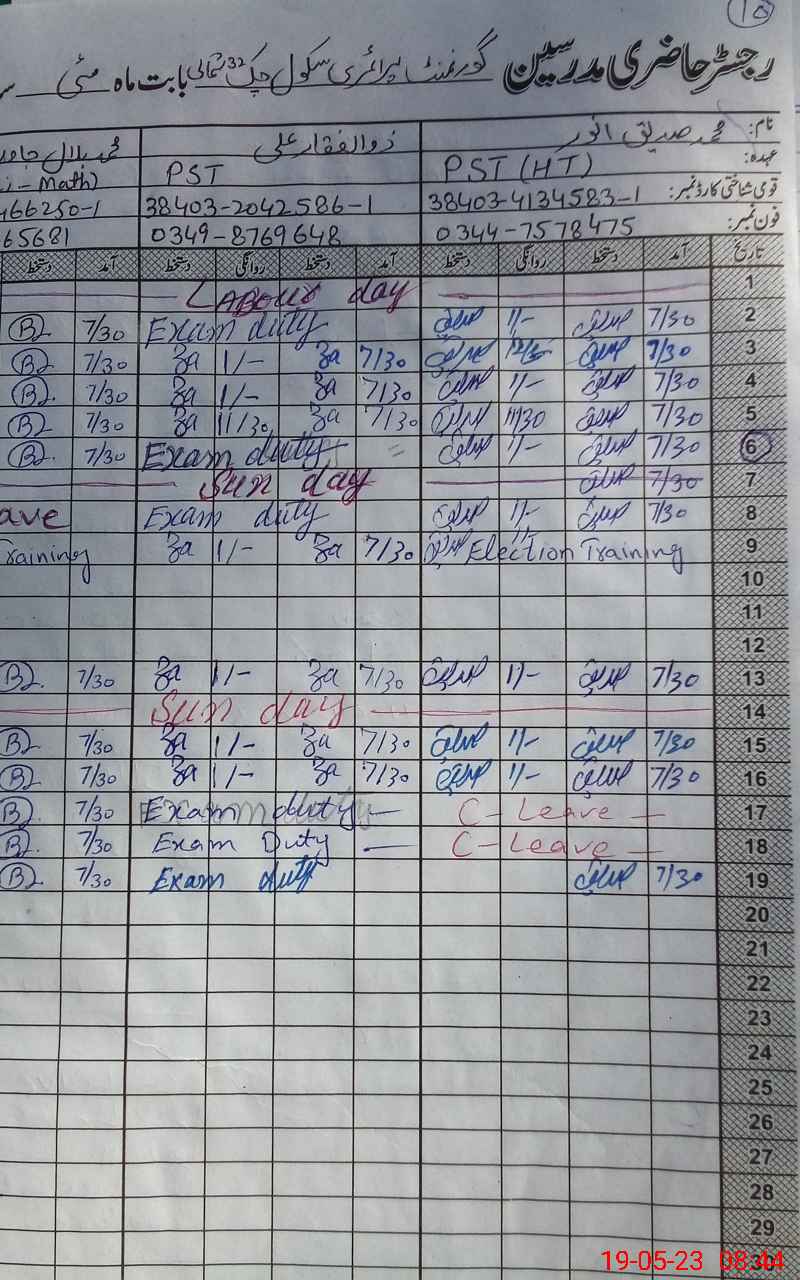 10
رجسٹر حاضری مدرسین گورنمنٹ پرائمری سکول چک 32 شمالی بابت ماہ مئی
نام: محمد صدیق انور ذوالفقار علی محمد بلال
عہدہ: PST (HT) PST - Math)
قومی شناختی کارڈ نمبر: 38403-4134583-1 38403-2042586-1 466250-1
فون نمبر: 0344-7578475 0349-8769648 65681
تاریخ آمد دستخط روانگی دستخط آمد دستخط روانگی دستخط آمد دستخط
1 Labour day
2 7/30 1/- Exam duty 7/30
3 7/30 7/30 1/- 7/30
4 7/30 1/- 7/30 1/- 7/30
5 7/30 11/30 7/30 11/30 7/30
6 7/30 1/- = Exam duty 7/30
7 7/30 Sun day
8 7/30 1/- Exam duty ave
9 Election Training 7/30 1/- Training
10
11
12
13 7/30 1/- 7/30 1/- 7/30
14 Sun day
15 7/30 1/- 7/30 1/- 7/30
16 7/30 1/- 7/30 1/- 7/30
17 C-Leave - Exam duty - 7/30
18 C-Leave - Exam Duty - 7/30
19 7/30 Exam duty 7/30
20
21
22
23
24
25
26
27
28
29
30
19-05-23 08:44